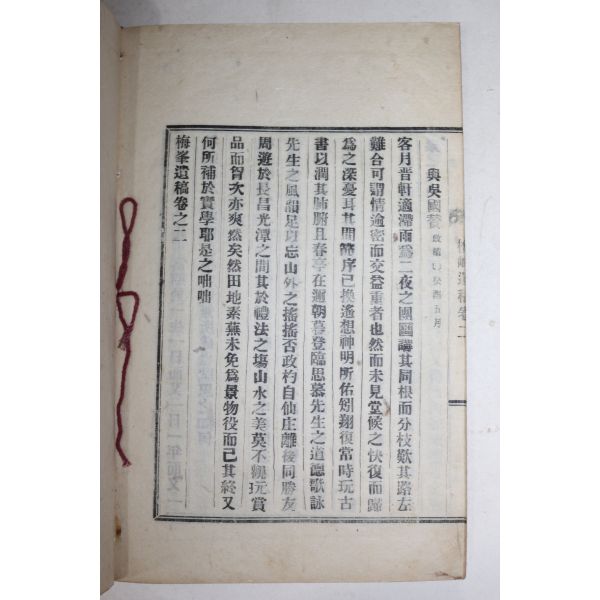 與吳國賛 致績 丁癸酉五月
客月晋軒適滯雨爲二夜之團圞講其同根而分枝歎其路左
難合可謂情逾密而交益重者也然而未見堂候之快復而歸
爲之深憂耳其間節序已換遙想神明所佑矧翔復常時玩古
書以潤其肺腑且春亭在邇朝暮登臨思慕先生之道德歌詠
先生之風韻足以忘山外之搖搖否政杓自仙庄離後同勝友
周遊於長昌光潭之間其於禮法之塲山水之美莫不縱玩賞
品而胷次亦爽然矣然田地素蕪未免爲景物役而已其終又
何所補於實學耶是之咄咄
梅峯遺稿卷之二